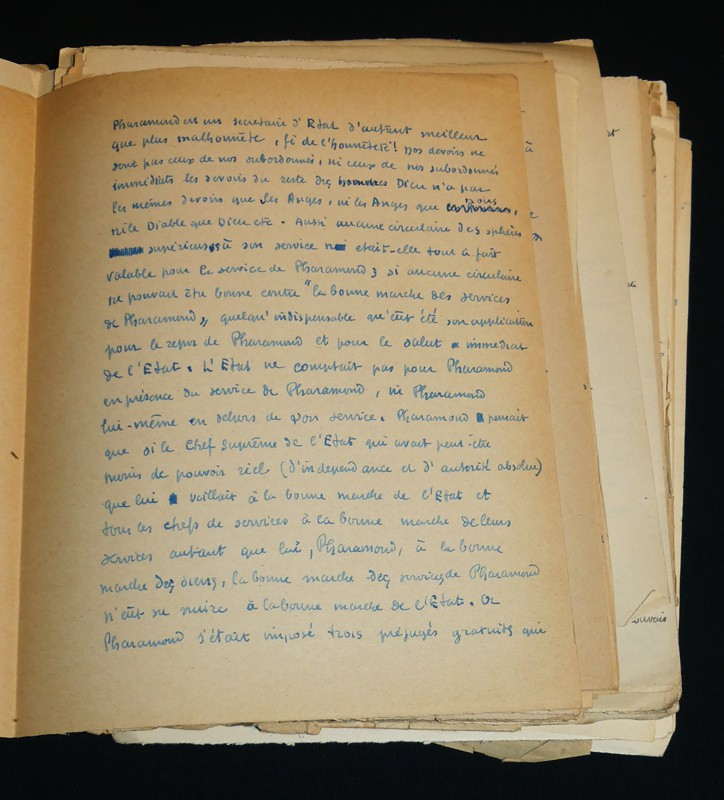 Pharamond est un secrétaire d'Etat d'autant meilleur
que plus malhonnête, fi de l'honnêteté! nos devoirs ne
sont pas ceux de nos subordonnés, ni ceux de nos subordonnés
immédiats les devoirs du reste des hommes Dieu n'a pas
les mêmes devoirs que les Anges, ni les Anges que nous,
ni le Diable que Dieu etc. Aussi aucune circulaire des sphères
supérieures à son service n'était-elle tout à fait
valable pour le service de Pharamond ; si aucune circulaire
ne pouvait être bonne contre "la bonne marche des services
de Pharamond", quelqu'indispensable qu'eût été son application
pour le repos de Pharamond et pour le salut immédiat
de l'Etat. L'Etat ne comptait pas pour Pharamond
en présence du service de Pharamond, ni Pharamond
lui-même en dehors de son service. Pharamond pensait
que si le Chef suprême de l'Etat qui avait peut-être
moins de pouvoir réel (d'indépendance et d'autorité absolue)
que lui veillait à la bonne marche de l'Etat et
tous les chefs de services à la bonne marche de leurs
services autant que lui, Pharamond, à la bonne
marche des siens, la bonne marche des services de Pharamond
n'eût su nuire à la bonne marche de l'Etat. Or
Pharamond s'était imposé trois préjugés gratuits qui
ouvais